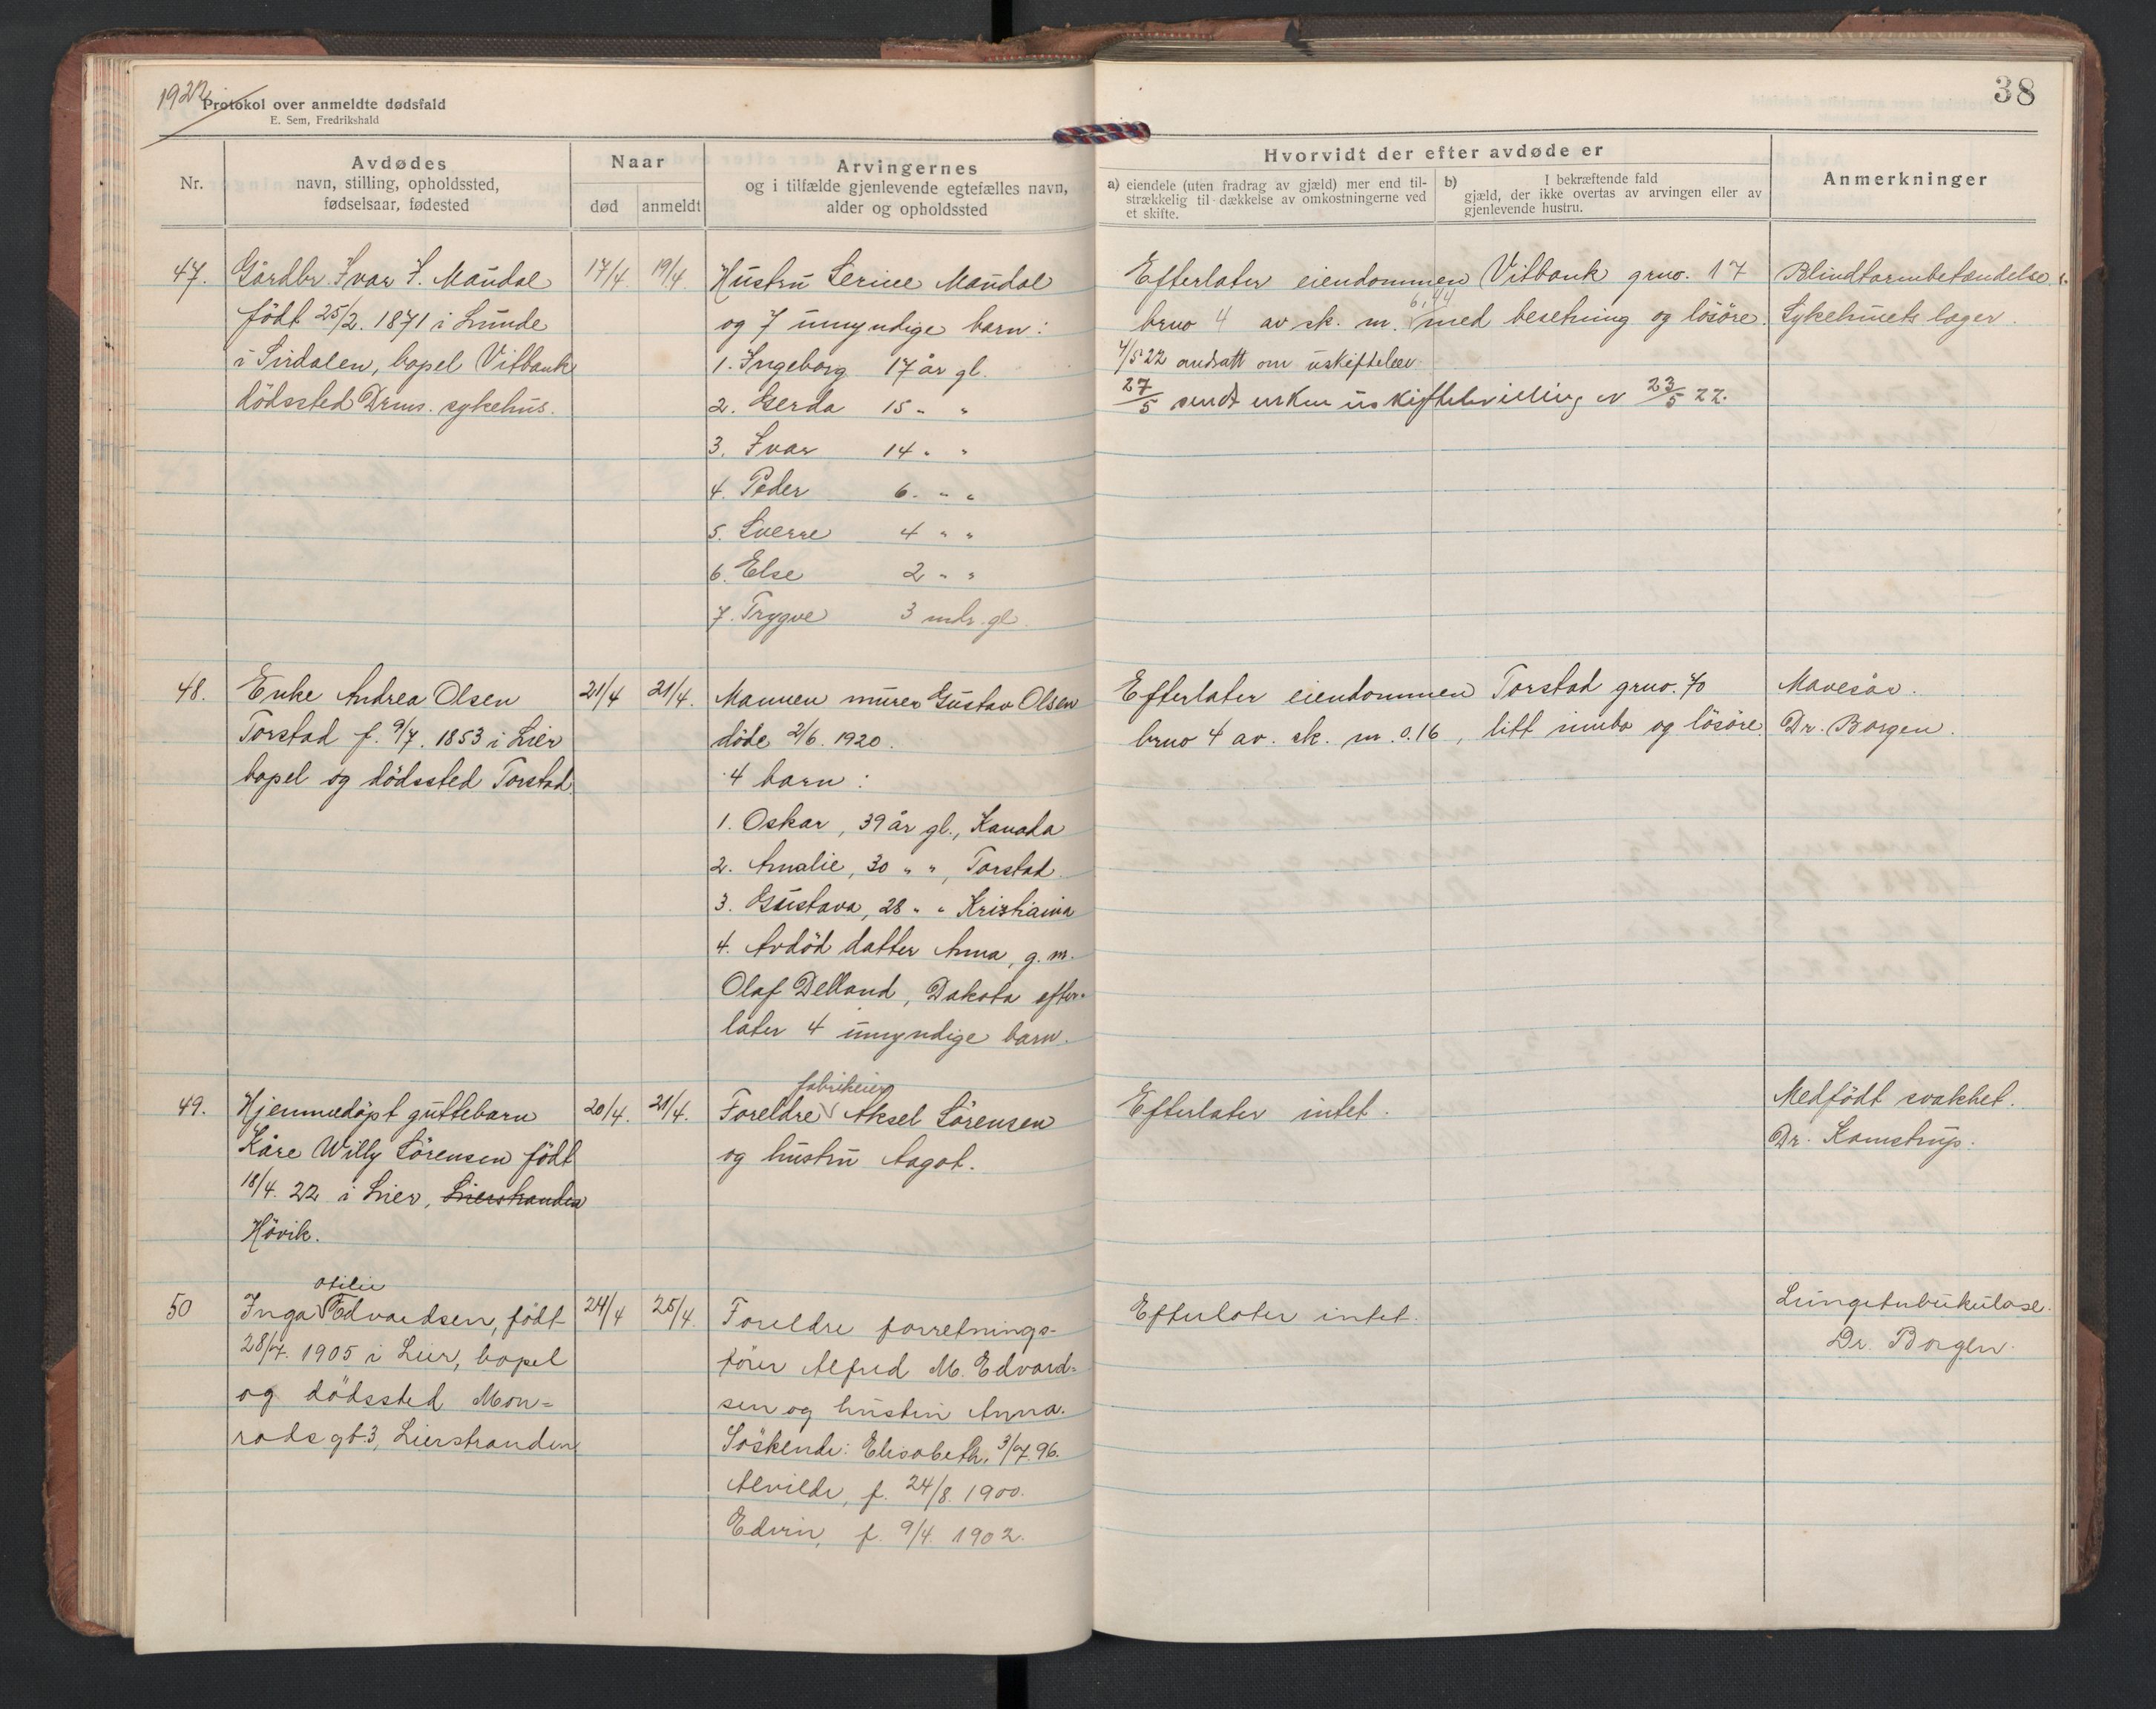 1922
Protokol over anmeldte dødsfald
E. Sem, Fredrikshald
38
Nr.
Avdødes
navn, stilling, opholdssted,
fødselsaar, fødested
Naar
død
anmeldt
Arvingernes
og i tilfælde gjenlevende egtefælles navn,
alder og opholdssted
Hvorvidt der efter avdøde er
a) eiendele (uten fradrag av gjæld) mer end til-
strækkelig til dækkelse av omkostningerne ved
et skifte.
b) I bekræftende fald
gjæld, der ikke overtas av arvingen eller av
gjenlevende hustru.
Anmerkninger
47.
Gårdbr. Ivar I. Maudal
født 25/2. 1871 i Lunde
i Sirdalen, bopel Vitbank
dödssted Drms. sykehus.
17/4
19/4
Hustru Serine Maudal
og 7 umyndige barn:
1. Ingeborg 17 år gl.
2. Gerda 15 " "
3. Ivar 14 " "
4. Peder 6 " "
5. Sverre 4 " "
6. Else 2 " "
7. Trygve 3 mdr. gl.
Efterlater eiendommen Vitbank grno. 17
brno 4 av sk. m. 6,44 med besetning og lösöre.
4/5 22 andratt om uskiftebev.
27/5 sendt enken uskiftebevilling av 23/5 22.
Blindtarmbetændelse
Sykehusets læger.
48.
Enke Andrea Olsen
Torstad f. 9/7. 1853 i Lier
bopel og dödssted Torstad.
21/4
21/4.
Mannen murer Gustav Olsen
döde 2/6. 1920.
4 barn:
1. Oskar, 39 år gl., Kanada
2. Amalie, 30 " ", Torstad.
3. Gustava, 28 " " Kristiania
4. Avdöd datter Anna, g. m.
Olaf Delland, Dakota efter-
later 4 umyndige barn.
Efterlater eiendommen Torstad grno. 70
brno 4 av. sk. m. 0.16, litt innbo og lösöre.
Mavesår.
Dr. Borgen.
49.
Hjemmedöpt guttebarn
Kåre Willy Sörensen födt
18/4. 22 i Lier, Lierstranden
Hövik.
20/4.
21/4.
Foreldre fabrikeier Aksel Sörensen
og hustru Aagot.
Efterlater intet.
Medfödt svakhet.
Dr. Kamstrup.
50
Inga Otilie Edvardsen, födt
28/7. 1905 i Lier, bopel
og dödssted Mon=
rads gt. 3, Lierstranden
24/4
25/4.
Foreldre forretnings-
förer Alfred M. Edvard=
sen og hustru Anna.
Söskende: Elisabeth, 3/7. 96.
Alvilde, f. 24/8. 1900.
Edvin, f. 9/4. 1902.
Efterlater intet.
Lungetuberkulose.
Dr. Borgen.